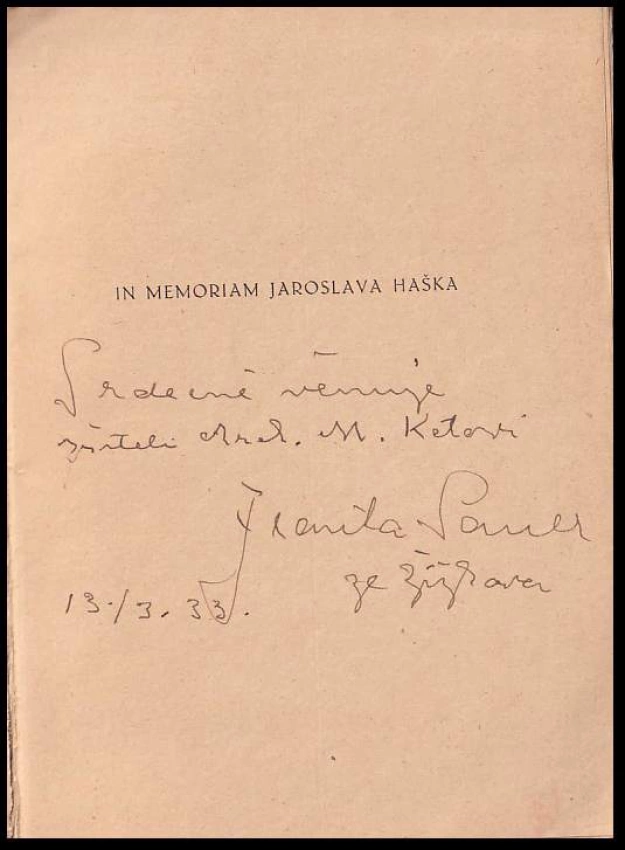 IN MEMORIAM JAROSLAVA HAŠKA
Srdečně věnuje
M. Ketovi
Franta Sauer
ze Žižkova
13./3. 33.